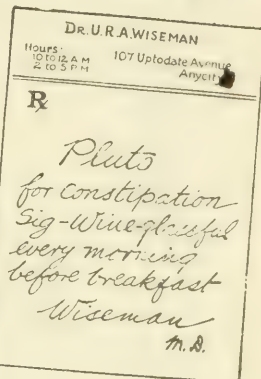 DR. U. R. A. WISEMAN
Hours:
10 TO 12 A M
2 TO 5 P M
107 Uptodate Avenue
Anycity
℞
Pluto
for constipation
Sig-Wine-glassful
every morning
before breakfast
Wiseman
M.D.